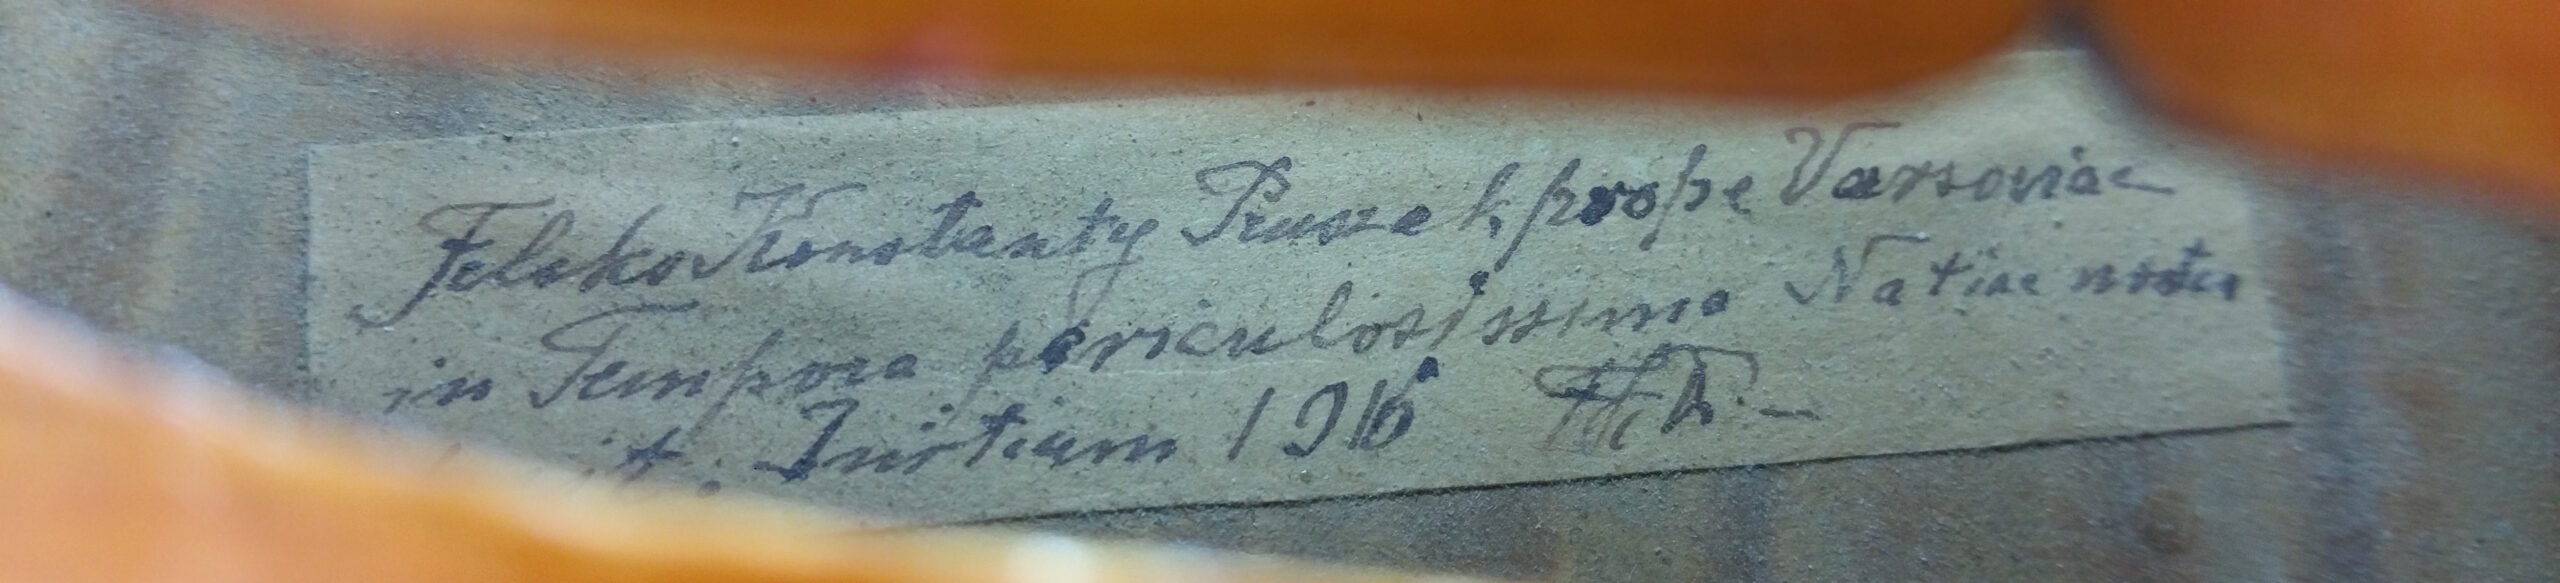 Felsko Konstanty Pruszak, prope Varsoviae
in Tempora periculosissima Natiae nostra
Initium 1916